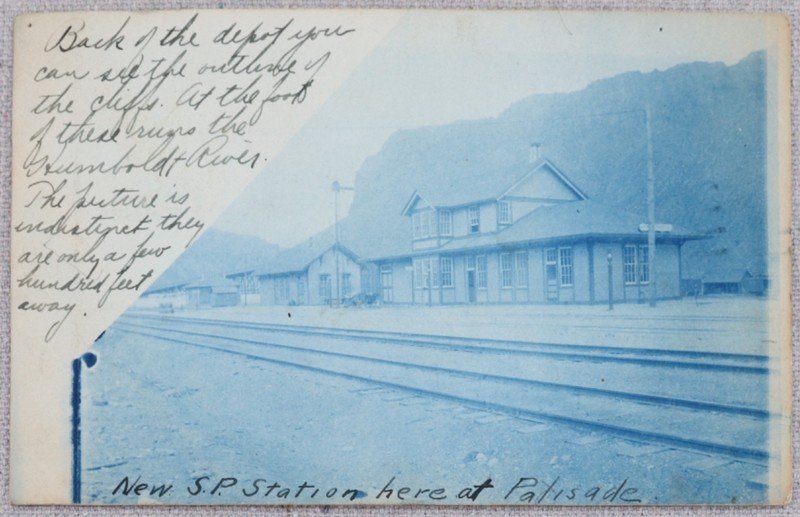 Back of the depot you
can see the outline of
the cliffs. At the foot
of these runs the
Humboldt River.
The picture is
indistinct, they
are only a few
hundred feet
away.
New S.P. Station here at Palisade.